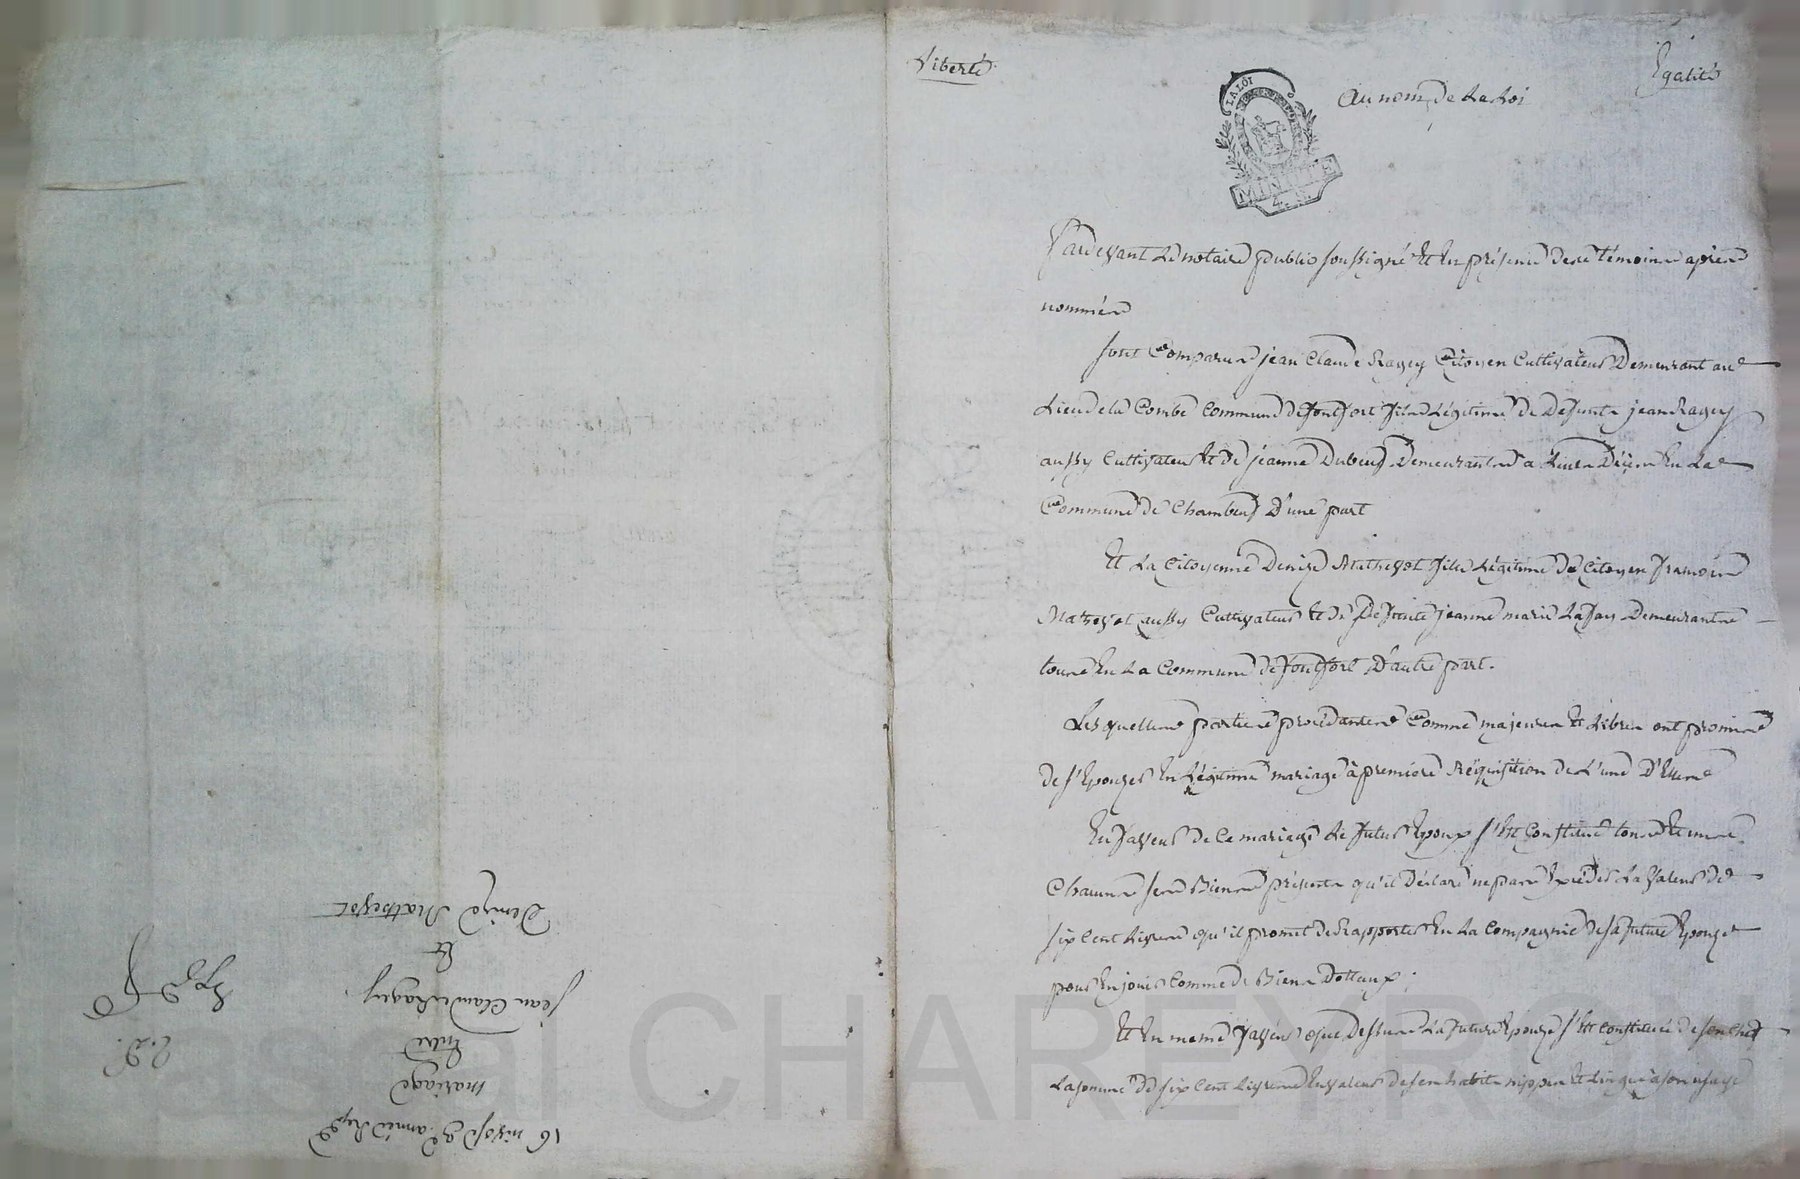 Liberté
Egalité
Au nom de La Loi
LA LOI
MINUTE
Pardevant Le notaire public soussigné Et En présence des témoins aprés
nommés
sont Comparus jean Claude Ragey Citoyen Cultivateur Demeurant au
Lieu de la Combe Commune de fontfort fils Légitime de Defunts jean Ragey
aussy Cultivateur Et de jeanne Dubeuf Demeurante a En La
Commune de Chambeuf D'une part
Et La Citoyenne Denize Mathevot fille Légitime de Citoyen françois
Mathevot aussy Cultivateur Et de Defunte jeanne marie Lafay Demeurants
tous En La Commune de fontfort D'autre part.
Lesquelles parties procédantes Comme majeures Et Libres ont promis
de s'Epouzer En Légitime mariage à premiere Réquisition de L'une D'Elles
En faveur de Ce mariage Le futur Epoux s'Est Constitué tous Et uns
Chacuns ses Biens présents qu'il Déclare ne pas Exceder La Valeur de
six Cent Livres qu'il promet de Rapporter En La Compagnie de sa future Epouze
pour En jouir Comme de Biens Dottaux ;
Et En meme faveur que Dessus La future Epouze s'Est Constitué de son Chef
La somme de six Cent Livres En valeur de ses habits nippes Et Linge à son usage
16 nivose 2e année Repe
mariage
Entre
jean Claude Ragey
Et
Denize Mathevot
Pascal CHAREYRON